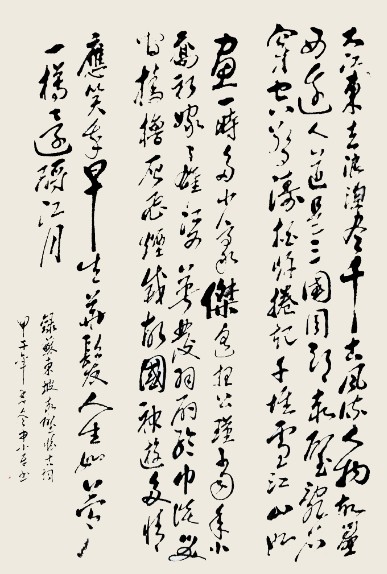 大江東去浪淘盡千古風流人物故壘
西邊人道是三國周郎赤壁亂石
穿空驚濤拍岸捲起千堆雪江山如
畫一時多少豪傑遙想公瑾當年小
喬初嫁了雄姿英發羽扇綸巾談笑
間檣櫓灰飛煙滅故國神遊多情
應笑我早生華髮人生如夢
一樽還酹江月
錄蘇東坡赤壁懷古詞
甲午年冬書